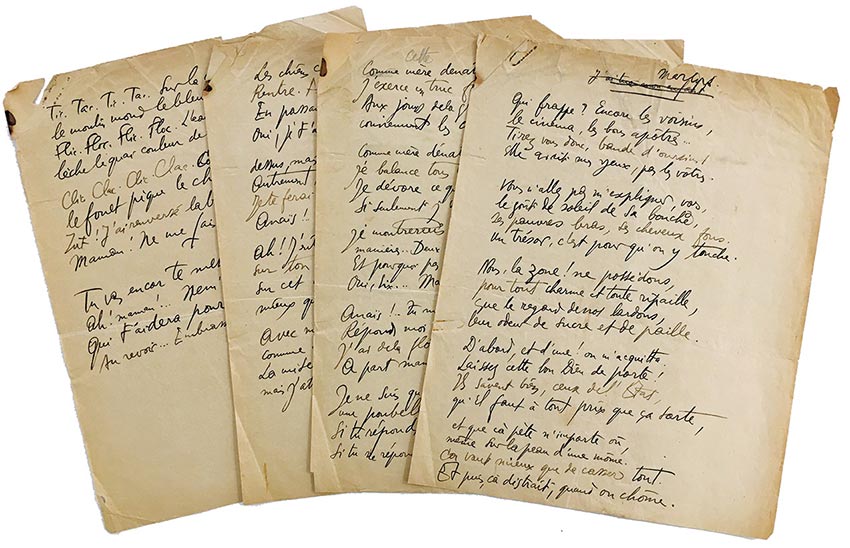 Tic. Tac. Tic. Tac. Sur le
le moulin moud le bleu
Flic. Floc. Flic. Floc. L'eau
lèche le quai couleur de
Clic Clac. Clic Clac.
le fouet pique le ch
Zut! J'ai renversé la b
Maman! Ne me fais
Tu vas encor te met
Ah! maman!... Mem
qui t'aidera pour
Au revoir... Embrass
Les chiens c
Rentre.
En passan
Oui, j'ét
dessus, mais
Autrement
je te ferai
Anaïs!..
Ah! J'ét
sur ton
sur cet
mieux qu
Avec m
comme
La mise
mais j'ab
cette
Comme mère dénat
J'exerce un truc
Aux jours de la
conviennent les
Comme mère dénat
je balance tous
Je dévore ce q
Si seulement j'
Je montrerais
manière... Deux
Et pourquoi pas
Oui, dix... Ma
Anaïs!.. Tu m
Répond moi
J'ai de la glo
A part mam
Je ne suis qu
une poubell
Si tu répond
Si tu ne répon
Martyre.
J'ai tué mon enfant
Qui frappe? Encore les voisins,
le cinéma, les bons apôtres...
Tirez vous donc, bande d'oursins!
Elle avait mes yeux, pas les vôtres.
Vous n'allez pas m'expliquer, vous,
le goût de soleil de sa bouche,
ses pauvres bras, ses cheveux fous.
Un trésor, c'est pour qu'on y touche.
Nous, la zone! ne possédons,
pour tout charme et toute ripaille,
que le regard de nos lardons,
leur odeur de sucre et de paille.
D'abord, et d'une! on m'acquitte
Laissez cette bon Dieu de porte!
Ils savent bien, ceux de l'État,
qu'il faut à tout prix que ça sorte,
et que ça pète n'importe où,
même sur la peau d'une môme.
Ça vaut mieux que de casser tout.
Et puis, ça distrait, quand on chôme.